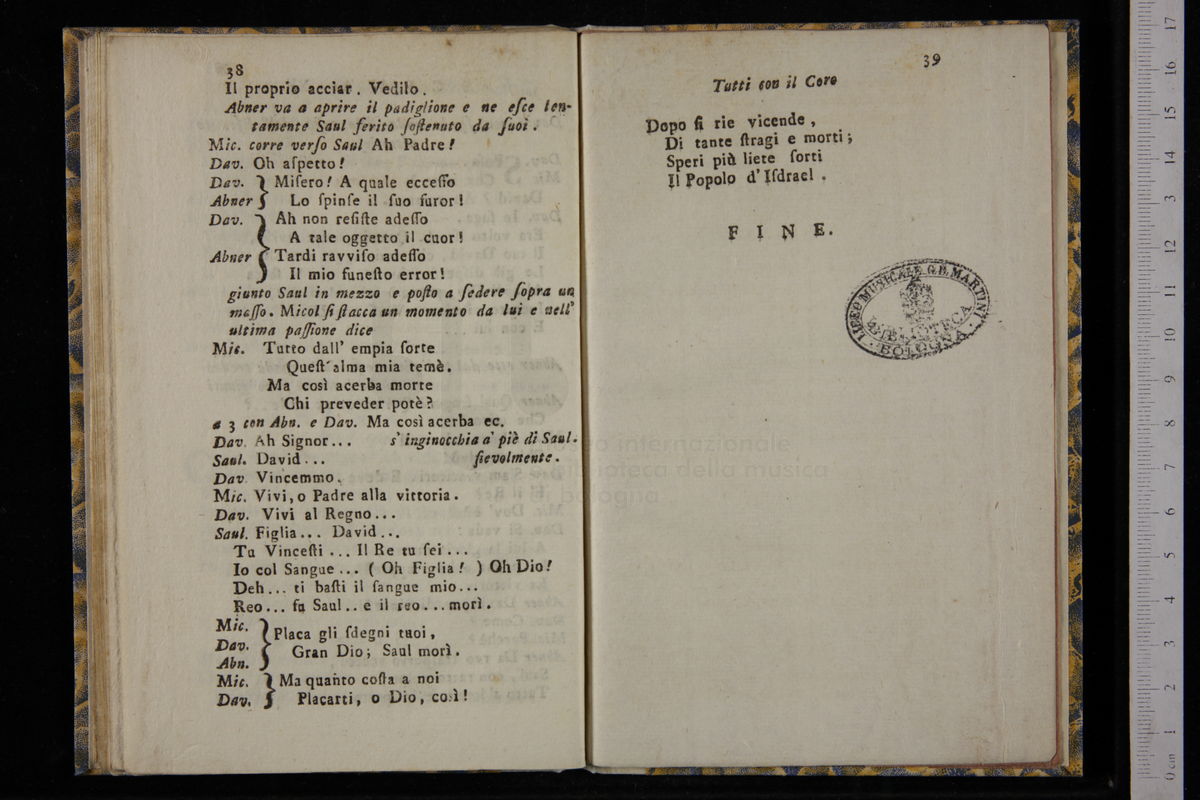 38
Il proprio acciar. Vedilo.
Abner va a aprire il padiglione e ne eſce len-
tamente Saul ferito ſoſtenuto da ſuoi.
Mic. corre verſo Saul Ah Padre!
Dav. Oh aſpetto!
Dav. } Miſero! A quale ecceſſo
Abner } Lo ſpinſe il ſuo furor!
Dav. } Ah non reſiſte adeſſo
A tale oggetto il cuor!
Abner } Tardi ravviſo adeſſo
Il mio funeſto error!
giunto Saul in mezzo e poſto a ſedere ſopra un
maſſo. Micol ſi ſtacca un momento da lui e nell'
ultima paſſione dice
Mic. Tutto dall' empia ſorte
Queſt'alma mia temè.
Ma così acerba morte
Chi preveder potè?
a 3 con Abn. e Dav. Ma così acerba ec.
Dav. Ah Signor... s' inginocchia a' piè di Saul.
Saul. David... fievolmente.
Dav. Vincemmo.
Mic. Vivi, o Padre alla vittoria.
Dav. Vivi al Regno...
Saul. Figlia... David...
Tu Vinceſti... Il Re tu ſei...
Io col Sangue... ( Oh Figlia! ) Oh Dio!
Deh... ti baſti il ſangue mio...
Reo... fu Saul.. e il reo...morì.
Mic.
Dav. } Placa gli ſdegni tuoi,
Abn. Gran Dio; Saul morì.
Mic. } Ma quanto coſta a noi
Dav. } Placarti, o Dio, così!
39
Tutti con il Coro
Dopo ſi rie vicende,
Di tante ſtragi e morti;
Speri più liete ſorti
Il Popolo d'Iſdrael.
FINE.
LICEO MUSICALE G.B. MARTINI
BIBLIOTECA
BOLOGNA
museo internazionale
e biblioteca della musica
di bologna
0 cm 1 2 3 4 5 6 7 8 9 10 11 12 13 14 15 16 17